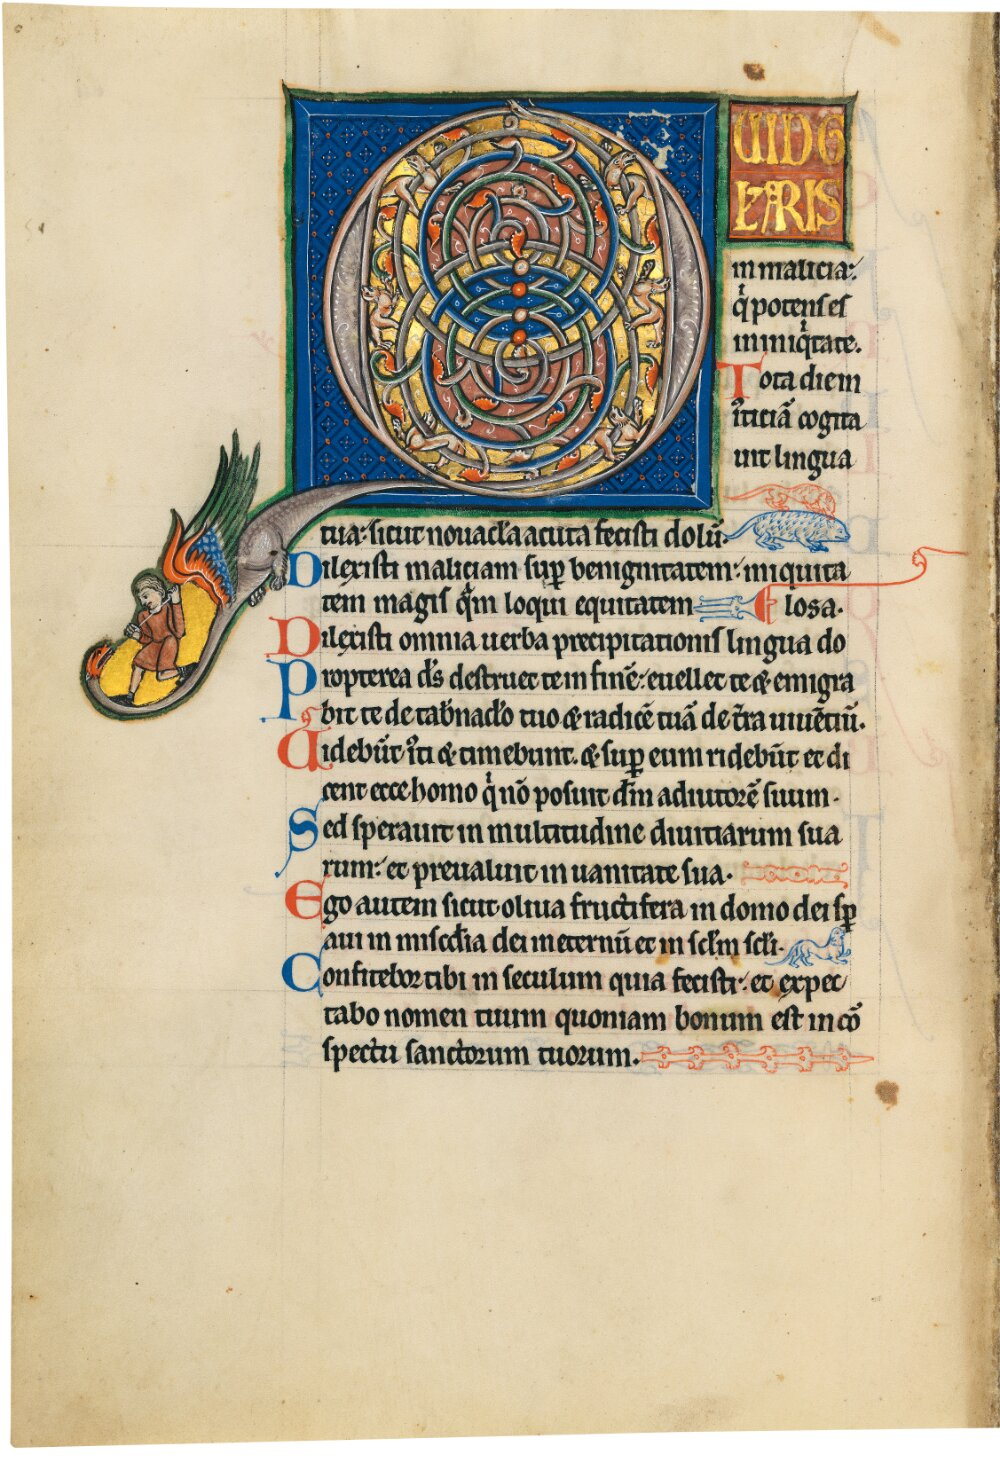 QUID G
LARIS
in malicia:
qͥ potens es
in iniqͥtate.
Tota diem
iͥticiā cogita
uit lingua
tua: sicut nouacl̄a acuta fecisti dolū.
Dilexisti maliciam sup̄ benignitatem: iniquita
tem magis q̄m loqui equitatem
losa.
Dilexisti omnia uerba precipitationis lingua do
Propterea d̄s destruet te in finē: euellet te & emigra
bit te de tab̄nacl̄o tuo & radicē tuā de t̄ra uiuētiū.
Uidebūt iͥti & timebunt. & sup̄ eum ridebūt et di
cent ecce homo qͥ nō posuit d̄m adiutorē suum.
Sed sperauit in multitudine diuitiarum sua
rum: et preualuit in uanitate sua.
Ego autem sicut oliua fructifera in domo dei sp̄
aui in mis̄cdia dei in eternū et in sc̄lm sc̄li.
Confitebor tibi in seculum quia fecisti: et expec
tabo nomen tuum quoniam bonum est in cō
spectu sanctorum tuorum.